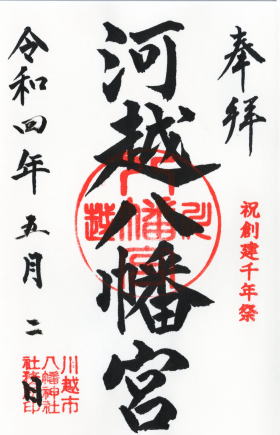 奉拝
祝創建千年祭
河越八幡宮
令和四年五月二日
川越市
八幡神社
社務所印